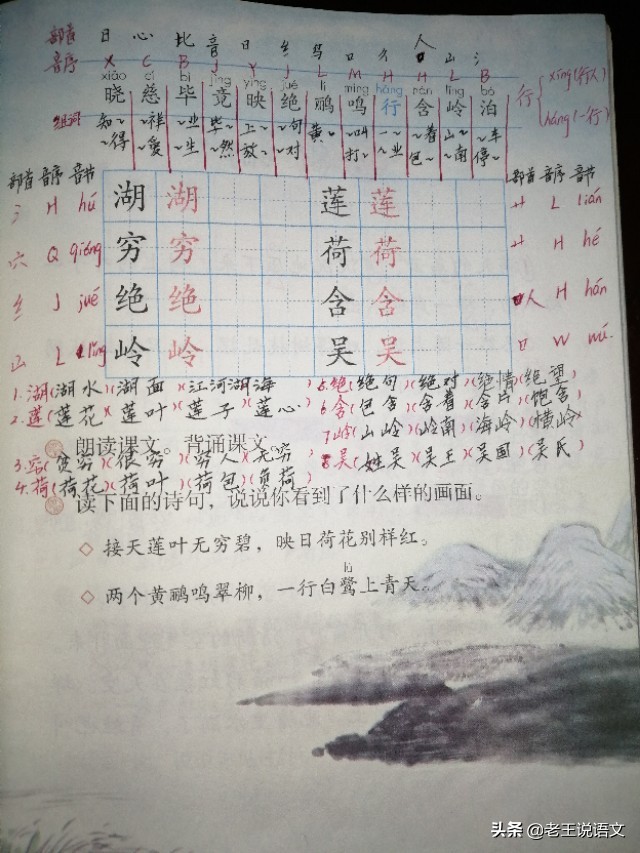 部首 日 心 比 音 日 纟 鸟 口 彳 人 山 氵
音序 X C B J Y J L M H H L B
xiǎo cí bì jìng yìng jué lí míng háng hán lǐng bó
晓 慈 毕 竟 映 绝 鹂 鸣 行 含 岭 泊
行 xíng(行人)
háng(一行)
组词 知~ ~祥 ~业 毕~ 上~ ~句 黄~ ~叫 一~ ~着 山~ ~车
~得 ~爱 ~生 ~然 放~ ~对 打~ ~业 包~ ~南 停~
部首 音序 音节 部首 音序 音节
氵 H hú 湖 湖 莲 莲 艹 L lián
穴 Q qióng 穷 穷 荷 荷 艹 H hé
纟 J jué 绝 绝 含 含 人 H hán
山 L lǐng 岭 岭 吴 吴 口 W wú
1.湖(湖水)(湖面)(江河湖海) 5.绝(绝句)(绝对)(绝情)(绝望)
2.莲(莲花)(莲叶)(莲子)(莲心) 6含(包含)(含着)(含片)(饱含)
朗读课文。背诵课文。
7岭(山岭)(岭南)(海岭)(横岭)
3.穷(贫穷)(很穷)(穷人)(无穷) 8吴(姓吴)(吴王)(吴国)(吴氏)
4.荷(荷花)(荷叶)(荷包)(负荷)
读下面的诗句，说说你看到了什么样的画面。
◇ 接天莲叶无穷碧，映日荷花别样红。
lù
◇ 两个黄鹂鸣翠柳，一行白鹭上青天。
头条 @老王说语文